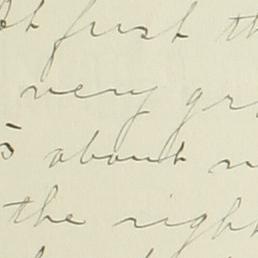 At first th
very gr
5 about m
the righ